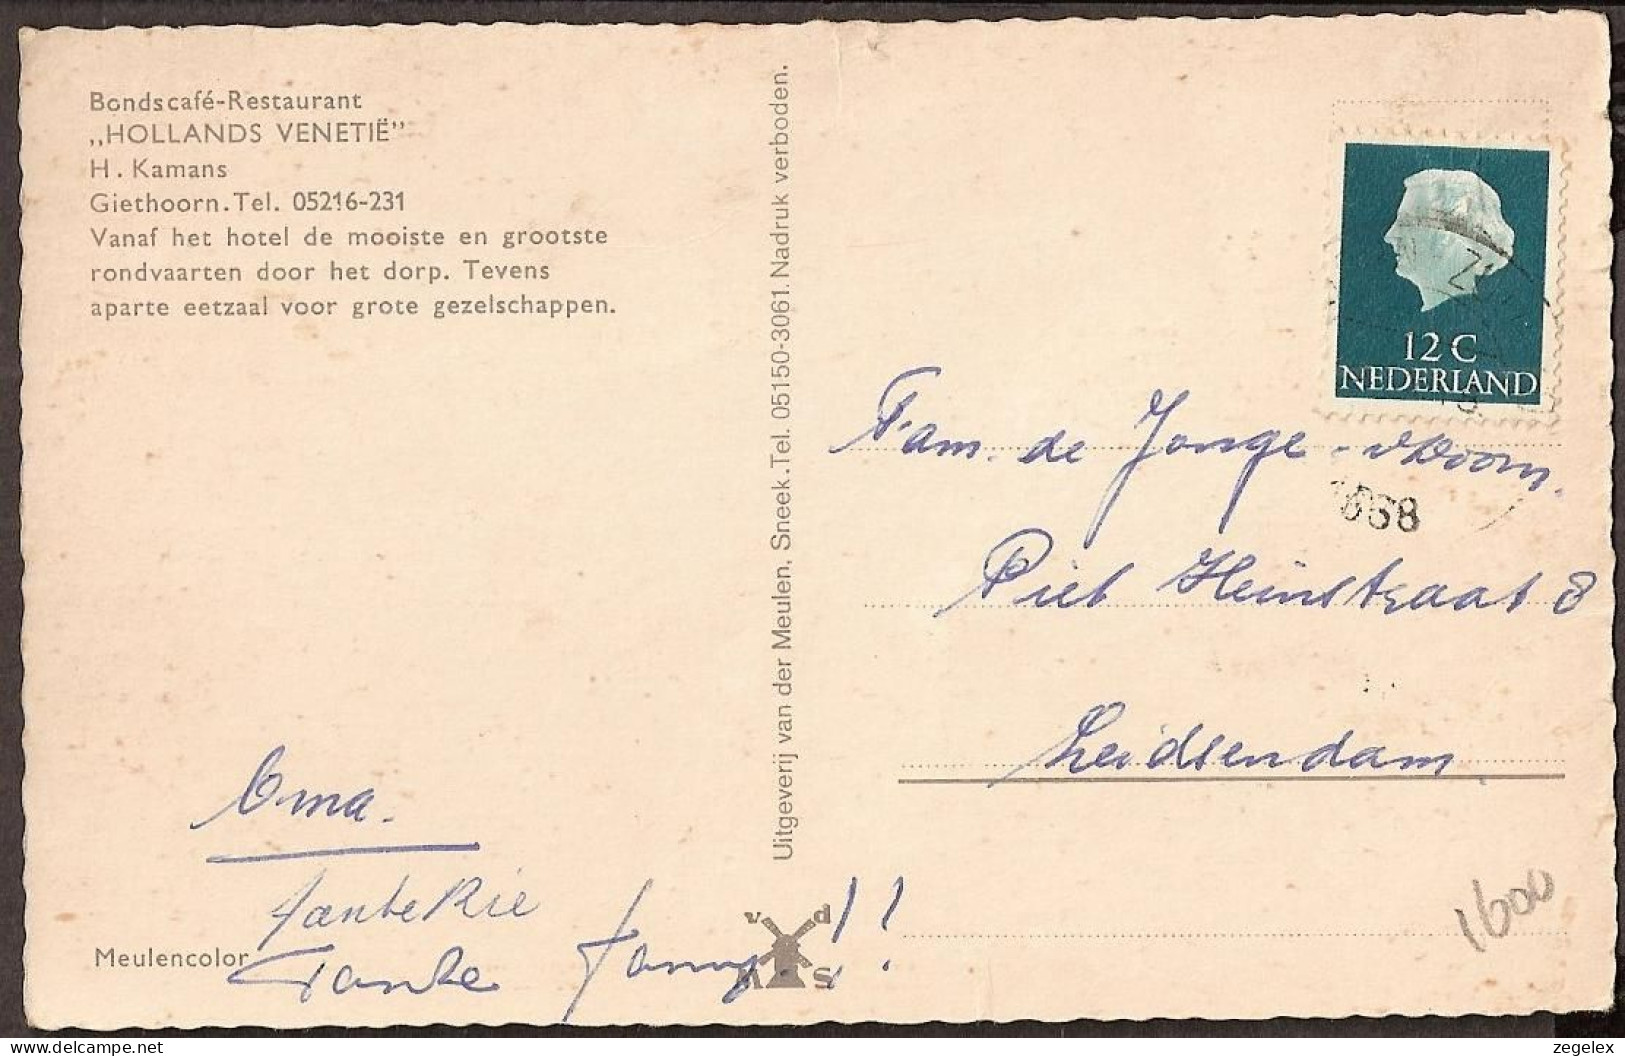 Bondscafé-Restaurant
„HOLLANDS VENETIË”
H. Kamans
Giethoorn. Tel. 05216-231
Vanaf het hotel de mooiste en grootste
rondvaarten door het dorp. Tevens
aparte eetzaal voor grote gezelschappen.
Oma.
Tante Rie
Tante
Meulencolor
v d
M S
Uitgeverij van der Meulen. Sneek. Tel. 05150-3061. Nadruk verboden.
12 C
NEDERLAND
Fam. de Jonge - v Doorn.
Piet Heinstraat 8
Leidsendam.
1600
zegelex
delcampe.net